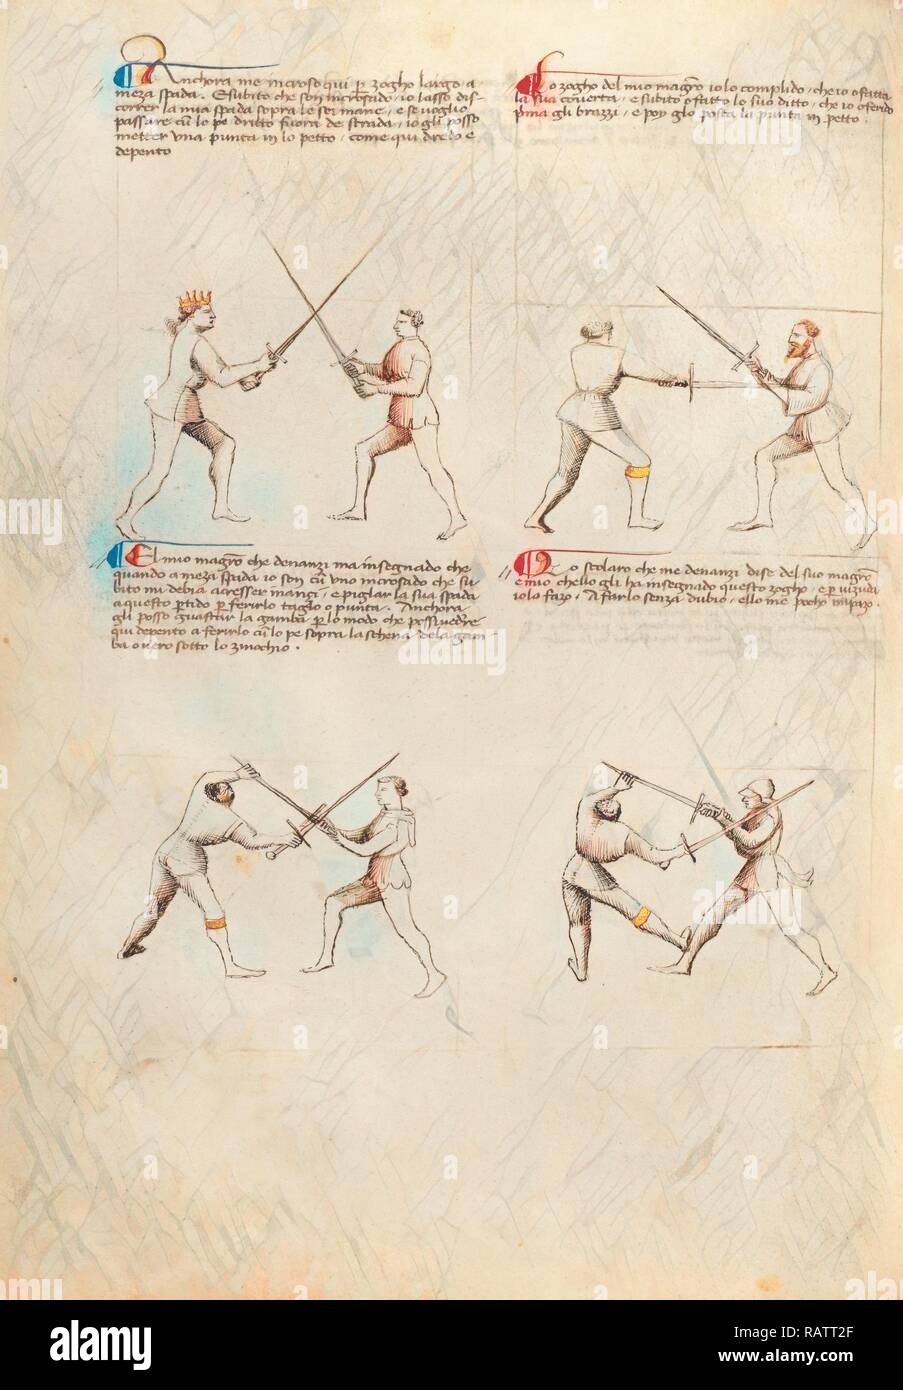 Anchora me incroso qui per zogho largo a
meza spada. E subito che son incrosado, io lasso dis-
correr la mia spada sopra le soi mane, e se voglio
passare cum lo pe dritto fuora de strada, io gli posso
metter una punta in lo petto, come qui dredo e
depento
Lo zogho del mio magistro io lo complido, che io o fatta
la sua coverta, e subito o fatto lo suo ditto, che io o ferido
prima gli brazzi, e poy glo posta la punta in petto.
El mio magistro che denanzi ma insegnado che
quando a meza spada io son cum uno incrosado che su-
bito mi debia acresser inanci, e pigliar la sua spada
a questo partido per ferirlo taglio o punta. Anchora
gli posso guastar la gamba per lo modo che possi vedere
qui depento a ferirlo cum lo pe sopra la schena dela gam-
ba overo sotto lo zinochio.
Lo scolaro che me denanzi dise del suo magistro
e mio chello gli ha insegnado questo zogho, e per vizuda
io lo fazo. A farlo senza dubio, ello me pocho impazo.
alamy
alamy
alamy
Image ID: RATT2F
www.alamy.com